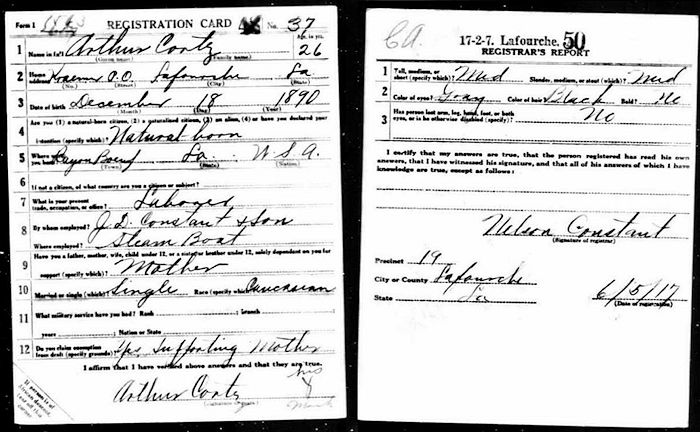 Form 1 REGISTRATION CARD No. 37
1 Name in full Arthur Coatz Age, in yrs. 26
(Given name) (Family name)
2 Home address Kraemer P.O. Lafourche La
(No.) (Street) (City) (State)
3 Date of birth December 18 1890
(Month) (Day) (Year)
4 Are you (1) a natural-born citizen, (2) a naturalized citizen, (3) an alien, (4) or have you declared your
intention (specify which)? Natural born
5 Where were you born? Bayou Boeuf La. U S A.
(Town) (State) (Nation)
6 If not a citizen, of what country are you a citizen or subject?
7 What is your present trade, occupation, or office? Laborer
8 By whom employed? Constant & Son
Where employed? Steam Boat
9 Have you a father, mother, wife, child under 12, or a sister or brother under 12, solely dependent on you for
support (specify which)? Mother
10 Married or single (which)? Single Race (specify which)? Caucasian
11 What military service have you had? Rank ; branch
years ; Nation or State
12 Do you claim exemption from draft (specify grounds)? Yes Supporting Mother
I affirm that I have verified above answers and that they are true.
his
Arthur Coatz X
(Signature or mark) mark
If person is of African descent, tear off this corner
C.A.
17-2-7. Lafourche. 50
REGISTRAR'S REPORT
1 Tall, medium, or short (specify which)? Med Slender, medium, or stout (which)? Med
2 Color of eyes? Gray Color of hair? Black Bald? No
3 Has person lost arm, leg, hand, foot, or both
eyes, or is he otherwise disabled (specify)? No
I certify that my answers are true, that the person registered has read his own
answers, that I have witnessed his signature, and that all of his answers of which I have
knowledge are true, except as follows:
Nelson Constant
(Signature of registrar)
Precinct 19
City or County Lafourche
State La 6/5/17
(Date of registration)